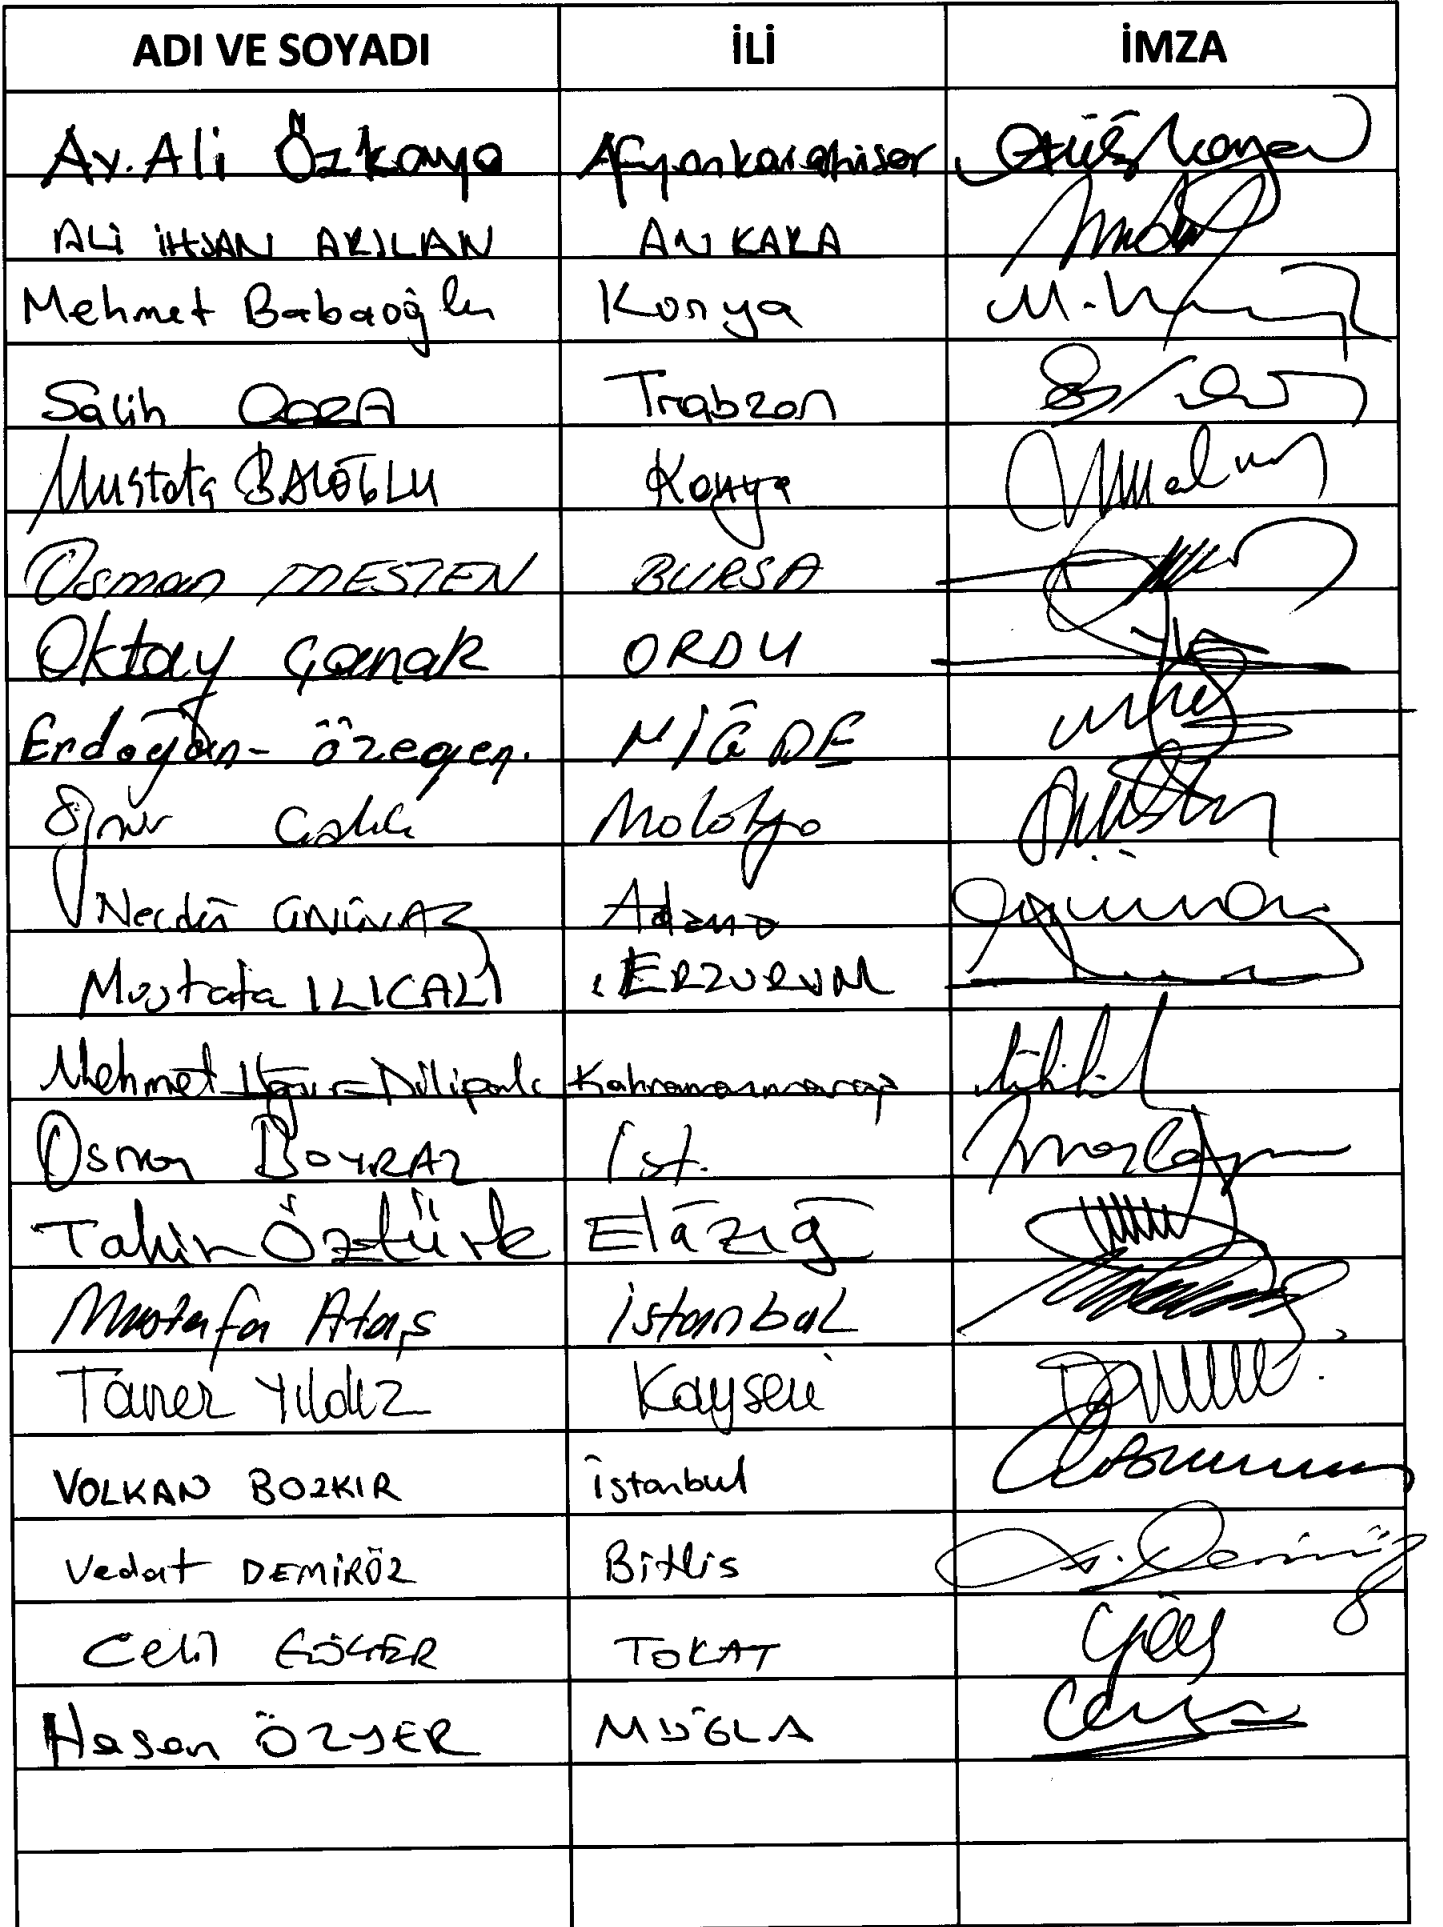 ADI VE SOYADI İLİ İMZA
Av. Ali Özkaya Afyonkarahisar
ALİ İHSAN ARSLAN ANKARA
Mehmet Babaoğlu Konya
Salih CORA Trabzon
Mustafa BALOĞLU Konya
Osman MESTEN BURSA
Oktay Çanak ORDU
Erdoğan - Özegen. NİĞDE
Öznur Çalık Malatya
Necdet ÜNÜVAR Adana
Mustafa ILICALI ERZURUM
Mehmet Uğur Dilipak Kahramanmaraş
Osman BOYRAZ İst.
Tahir Öztürk Elazığ
Mustafa Ataş İstanbul
Taner Yıldız Kayseri
VOLKAN BOZKIR İstanbul
Vedat DEMİRÖZ Bitlis
Celil GÖÇER TOKAT
Hasan ÖZYER MUĞLA